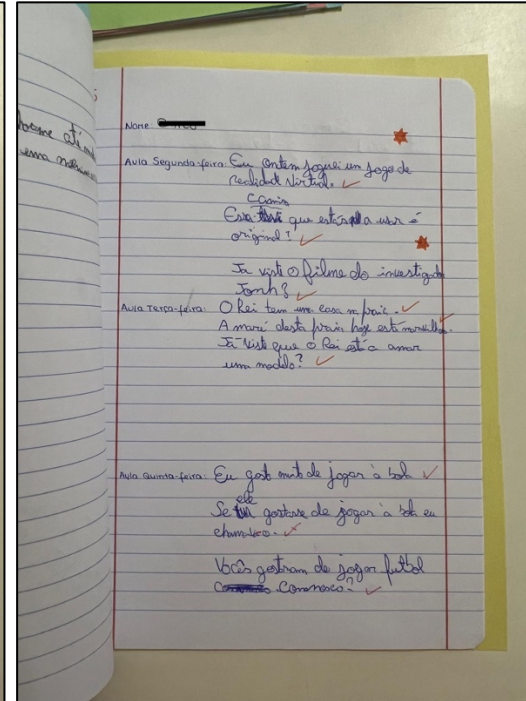 Nome:
Aula Segunda-feira: Eu ontem joguei um jogo de
realidade Virtual.
Essa que estás a usar é
original?
Ja viste o filme do investigador
Jonh?
Aula Terça-feira: O Rei tem uma casa na praia.
A maré desta praia hoje está
Já viste que o Rei está a amar
uma modelo?
Aula Quinta-feira: Eu gosto muito de jogar à bola
Se ele gostasse de jogar à bola eu
Vocês gostaram de jogar futbol
Connosco?